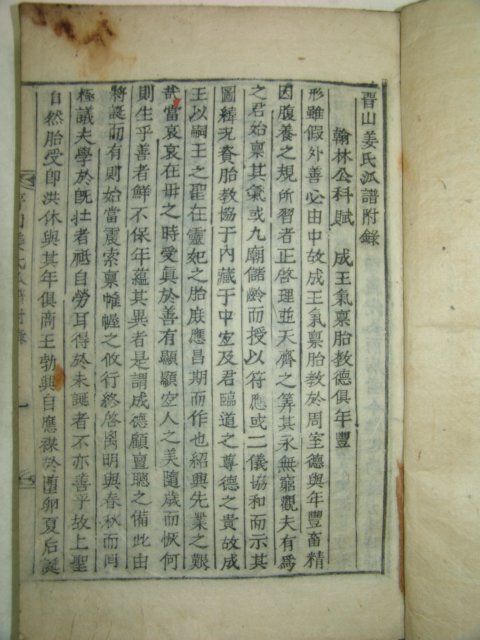 晋山姜氏派譜附錄
翰林公科賦 成王氣稟胎教德俱年豐
形雖假外善必由中故成王氣稟胎教於周室德與年豐畜精
因腹養之規所習者正啓理並天齊之筭其永無窮觀夫有爲
之君始稟其氣或九廟儲齡而授以符應或二儀協和而示其
圖縡況資胎教協于內藏于中室及君臨道之尊德之貴故成
王以嗣王之聖在靈妃之胎庶應昌期而作也紹興先業之艱
哉當哀哀在毋之時受眞於善有顯顯空人之美隨歲而恢何
則生乎善者鮮不保年蘊其異者是謂成德顧亶聰之備此由
將誕而有則始當震索稟帷幄之攸行終啓离明與春秋而同
極議夫學於旣壯者祗自勞耳得於未誕者不亦善乎故上聖
自然胎受卽洪休與其年俱商王勃興自應祿於墮卵夏后誕